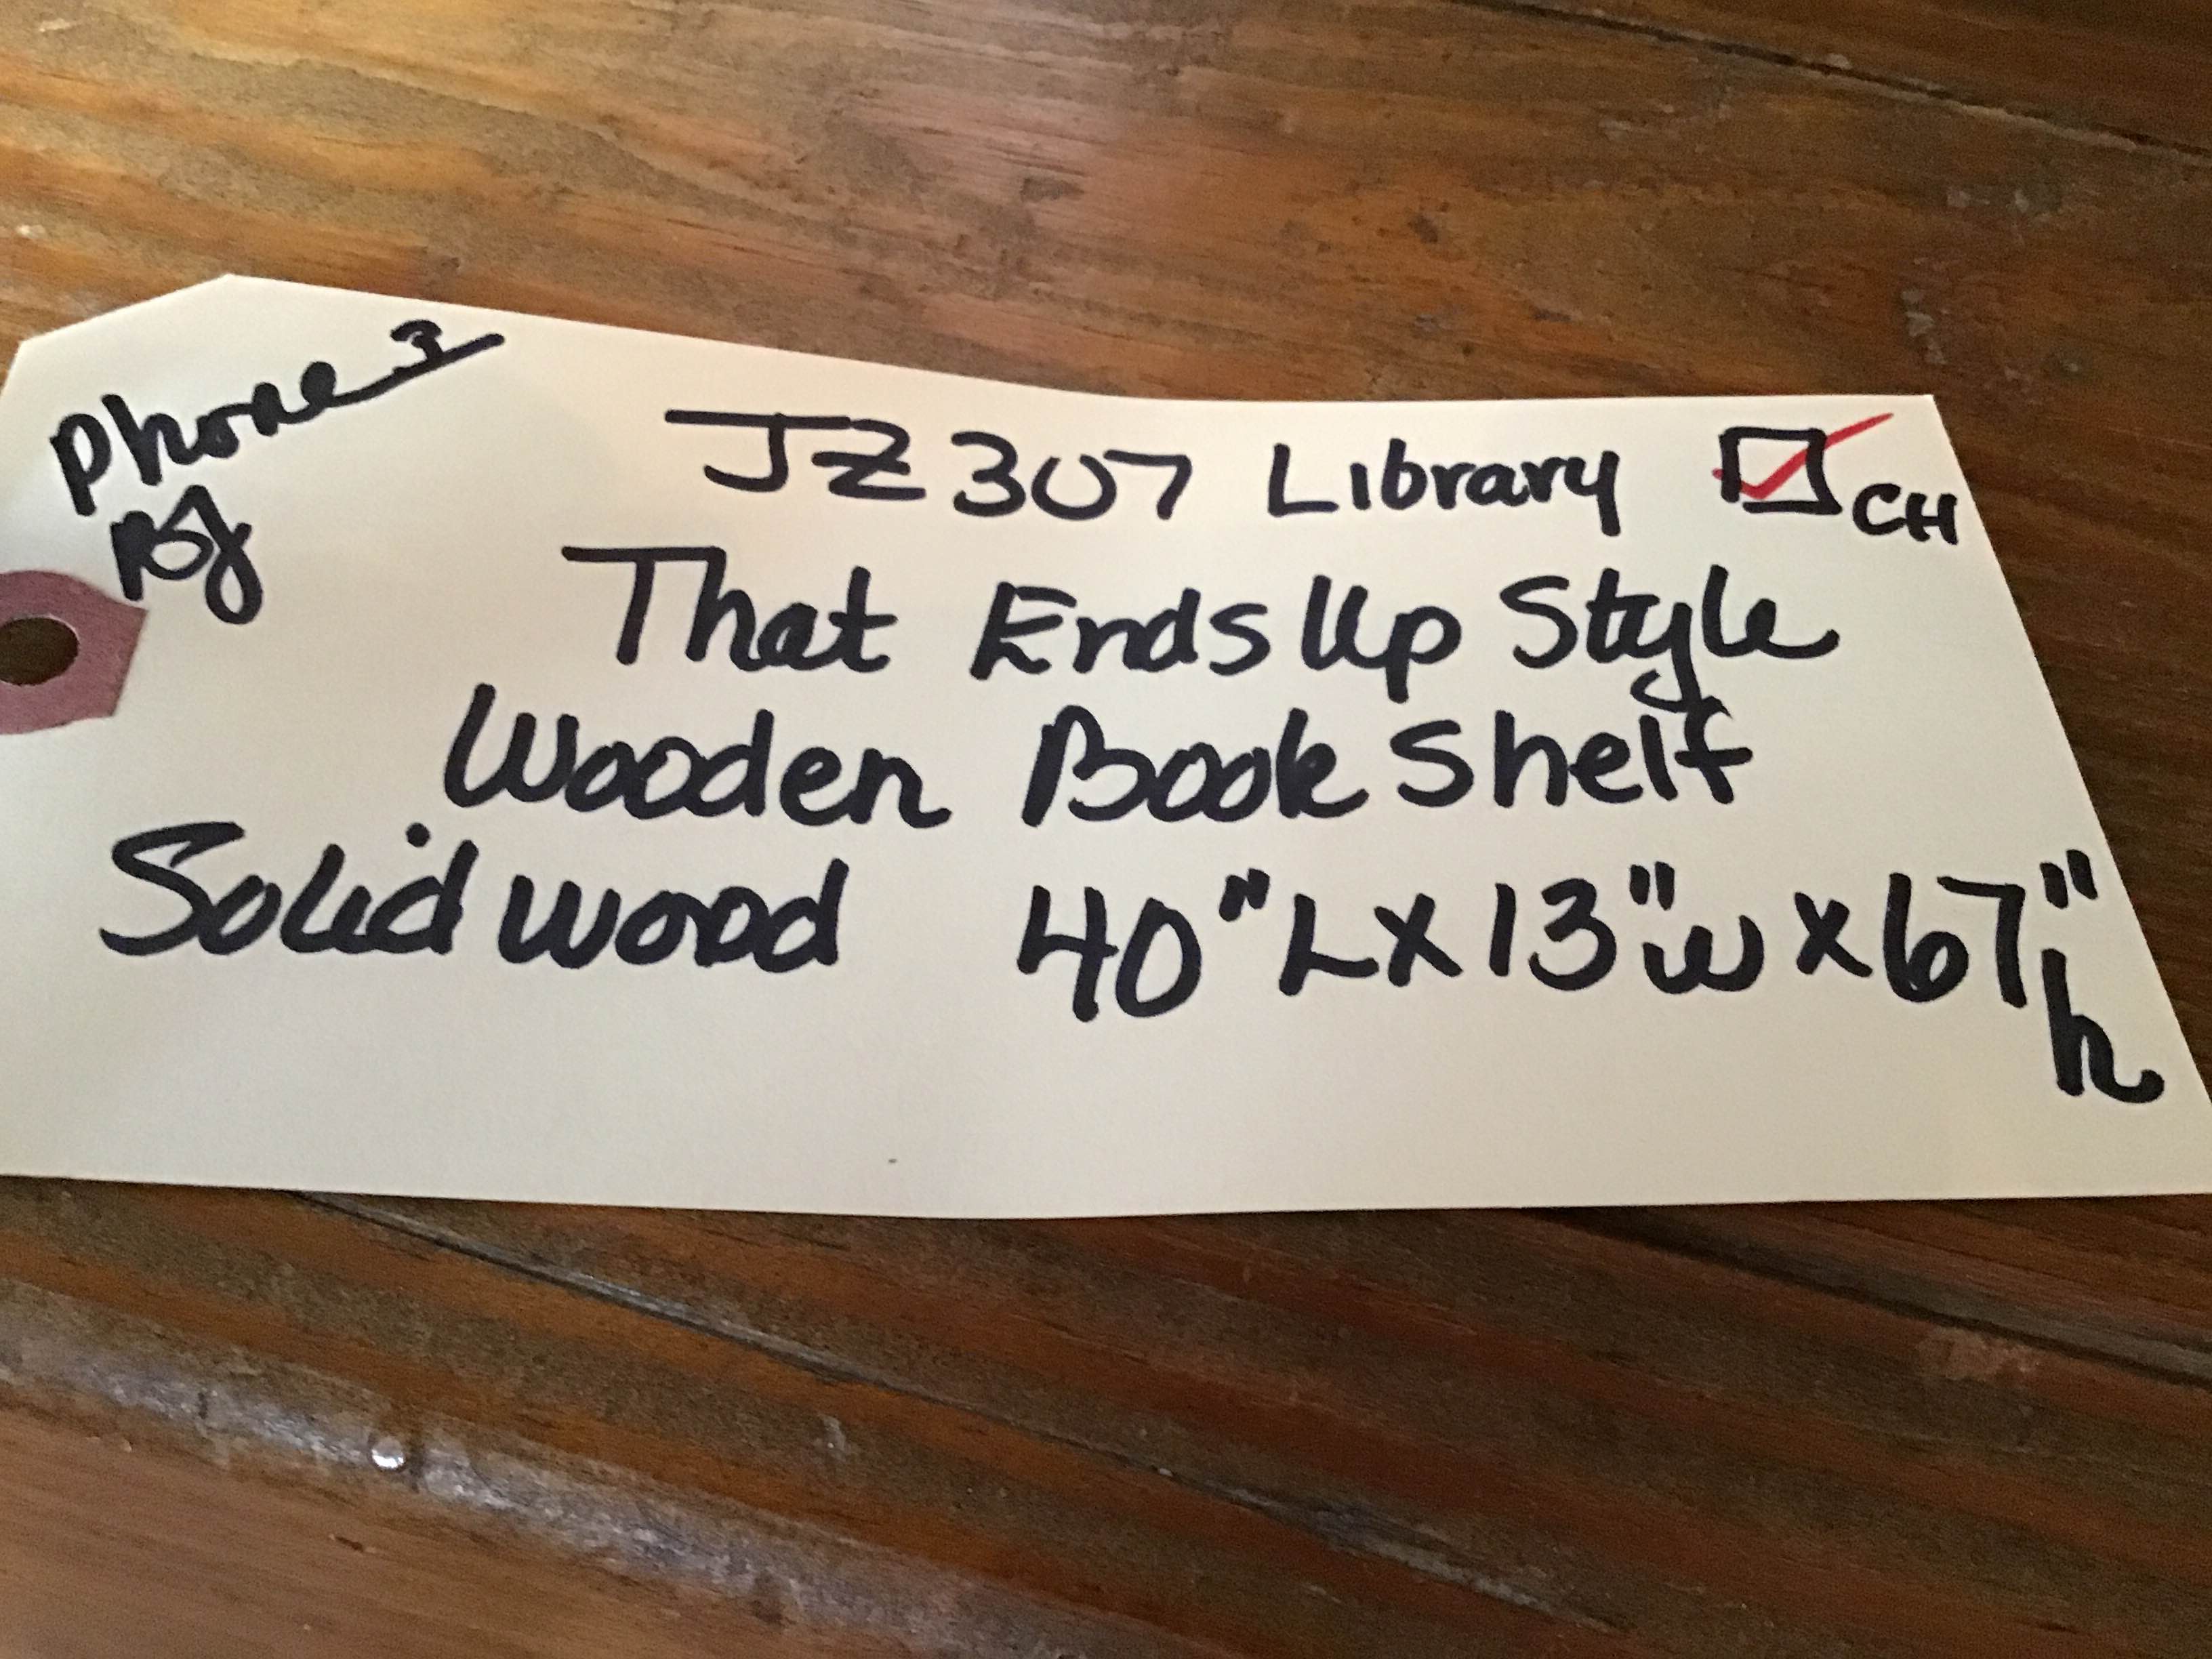 Phone 3
JZ 307 Library ☑ CH
That Ends Up Style
Wooden Book Shelf
Solid wood 40" L x 13" w x 67" h